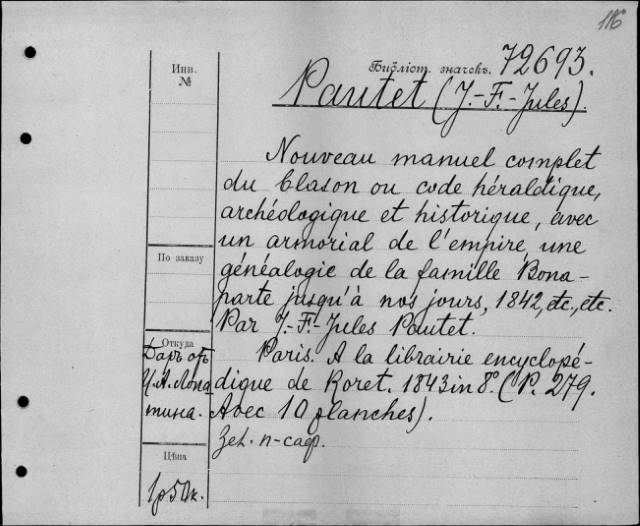 116
Инв.
№
Библіот. значекъ. 72693.
Pautet (J.-F.-Jules).
Nouveau manuel complet
du blason ou code héraldique,
archéologique et historique, avec
un armorial de l'empire, une
généalogie de la famille Bona-
parte jusqu'à nos jours, 1842, etc., etc.
Par J.-F.-Jules Pautet.
Paris. A la librairie encyclopé-
dique de Roret. 1843 in 8º. (P. 279.
Avec 10 planches).
По заказу
Откуда
Даръ отъ
И. А. Лопа-
тина.
Цѣна
1р 50к.